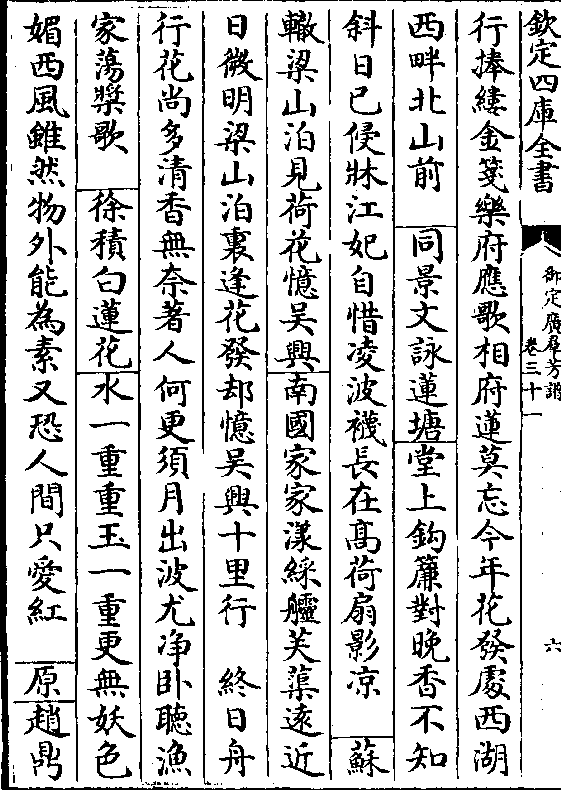 欽定四庫全書
御定廣羣芳譜
卷三十一
六
行捧縷金箋樂府應歌相府蓮莫忘今年花發處西湖
西畔北山前　同景文詠蓮塘堂上鈎簾對晚香不知
斜日已侵牀江妃自惜凌波襪長在髙荷扇影凉　蘇
轍梁山泊見荷花憶吴興南國家家漾綵艫芙蕖逺近
日微明梁山泊裏逢花發却憶吴興十里行　終日舟
行花尚多清香無奈著人何更須月出波尤净卧聽漁
家蕩槳歌　徐積白蓮花水一重重玉一重更無妖色
媚西風雖然物外能為素又恐人間只愛紅　原趙鼎